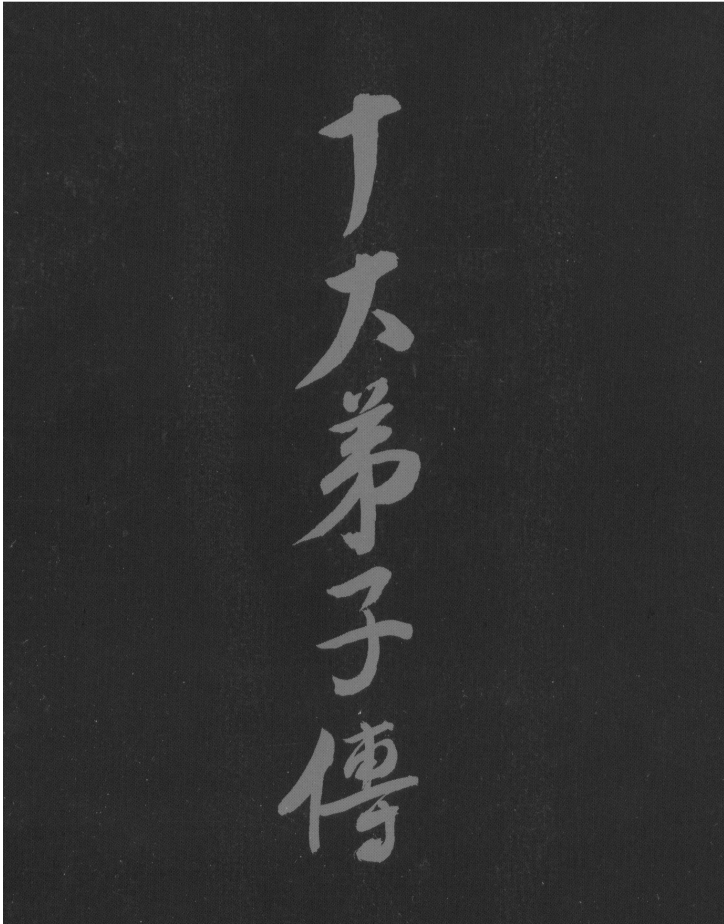 十大弟子傳